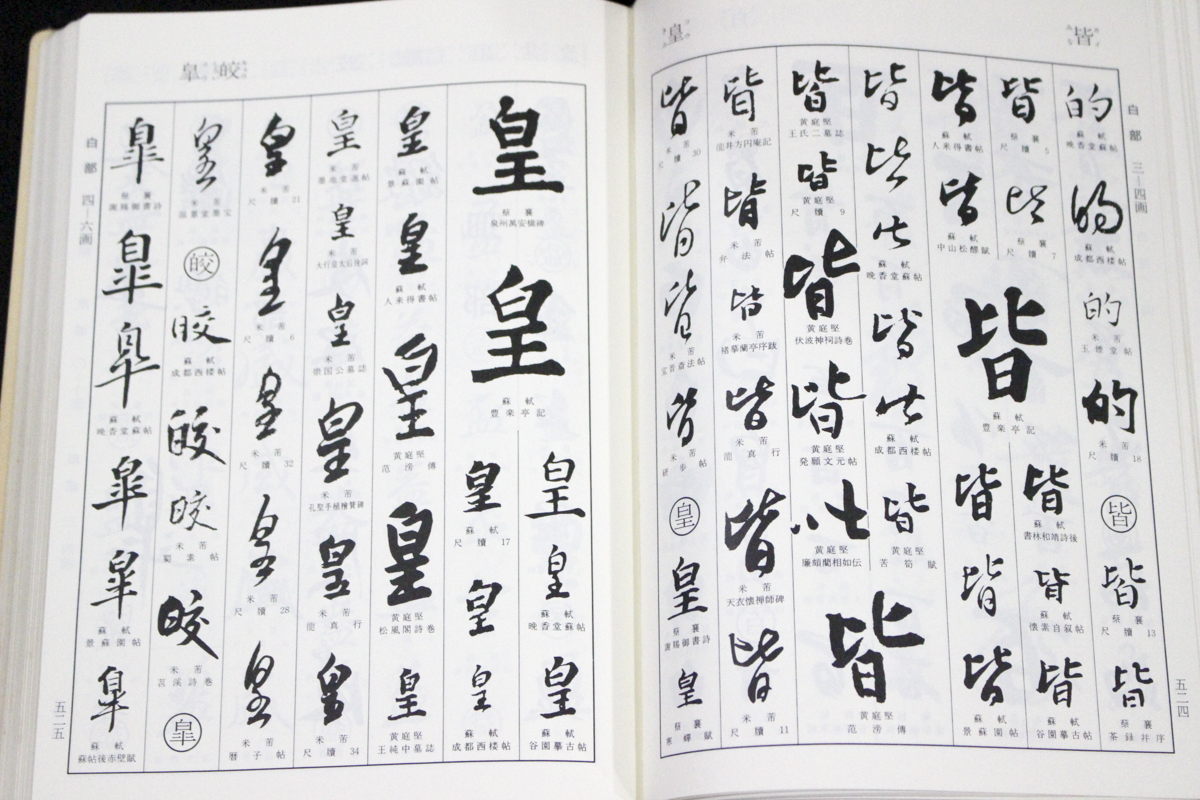 皇
皆
白部 三—四画
的
蘇軾
晩香堂蘇帖
的
蘇軾
成都西楼帖
的
的
米芾
尺牘18
皆
皆
蔡襄
尺牘13
皆
蔡襄
茶録并序
皆
蔡襄
尺牘5
皆
蔡襄
尺牘7
皆
蘇軾
人来得書帖
皆
蘇軾
中山松醪賦
皆
蘇軾
豊楽亭記
皆
蘇軾
書林和靖詩後
皆
蘇軾
懐素自叙帖
皆
蘇軾
谷園摹古帖
皆
皆
皆
蘇軾
景蘇園帖
皆
皆
皆
蘇軾
晩香堂蘇帖
皆
皆
蘇軾
成都西楼帖
皆
黄庭堅
苦筍賦
皆
黄庭堅
王氏二墓誌
皆
黄庭堅
尺牘9
皆
黄庭堅
伏波神祠詩巻
皆
黄庭堅
発願文元帖
皆
黄庭堅
廉頗藺相如伝
皆
黄庭堅
范滂傳
皆
米芾
龍井方円庵記
皆
米芾
弁法帖
皆
米芾
褚摹蘭亭序跋
皆
米芾
龍真行
皆
米芾
天衣懐禅師碑
皆
米芾
尺牘11
皆
米芾
尺牘30
皆
皆
米芾
宝晋斎法帖
皆
米芾
皇
皇
蔡襄
謝賜御書詩
皇
蔡襄
寒蝉賦
五二四
皐 皎
白部 四—六画
皇
蔡襄
泉州萬安橋碑
皇
蘇軾
豊楽亭記
皇
皇
蘇軾
晩香堂蘇帖
皇
蘇軾
谷園摹古帖
皇
蘇軾
尺牘17
皇
皇
蘇軾
成都西楼帖
皇
蘇軾
景蘇園帖
皇
蘇軾
人来得書帖
皇
黄庭堅
范滂傳
皇
黄庭堅
松風閣詩巻
皇
黄庭堅
王純中墓誌
皇
米芾
皇
米芾
大行皇太后挽詞
皇
米芾
崇国公墓誌
皇
米芾
孔聖手植檜賛碑
皇
米芾
龍真行
皇
米芾
尺牘34
皇
米芾
尺牘21
皇
米芾
尺牘6
皇
米芾
尺牘32
皇
米芾
尺牘28
皇
米芾
暦子帖
皇
米芾
皎
皎
蘇軾
成都西楼帖
皎
皎
米芾
蜀素帖
皎
米芾
苕渓詩巻
皐
皐
蔡襄
謝賜御書詩
皐
皐
蘇軾
晩香堂蘇帖
皐
皐
蘇軾
景蘇園帖
皐
蘇軾
蘇帖後赤壁賦
五二五